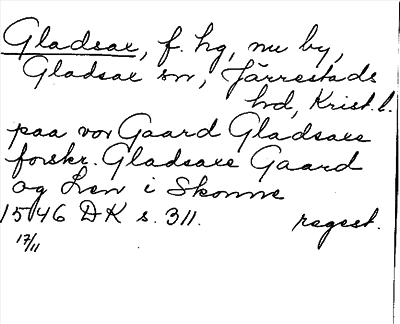 Gladsax, f. hg, nu by,
Gladsax sn, Järrestads
hd, Krist. l.
paa vor Gaard Gladsaxe
forskr. Gladsaxe Gaard
og Len i Skonne
1546 DK s. 311. regest.
17/11